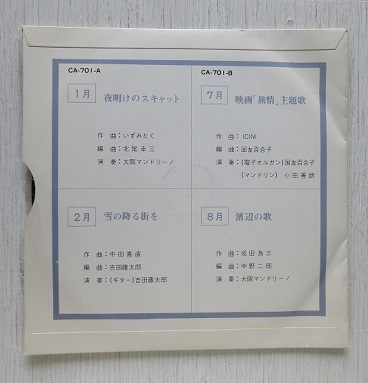 CA-701-A
1月 夜明けのスキャット
作曲:いずみたく
編曲:北尾幸三
演奏:大阪マンドリーノ
2月 雪の降る街を
作曲:中田喜直
編曲:吉田雄太郎
演奏:(ギター)吉田藤太郎
CA-701-B
7月 映画「旅情」主題歌
作曲:ICINI
編曲:国友百合子
演奏:(電子オルガン)国友百合子
(マンドリン) 小田善朗
8月 濱辺の歌
作曲:成田為三
編曲:中野二郎
演奏:大阪マンドリーノ